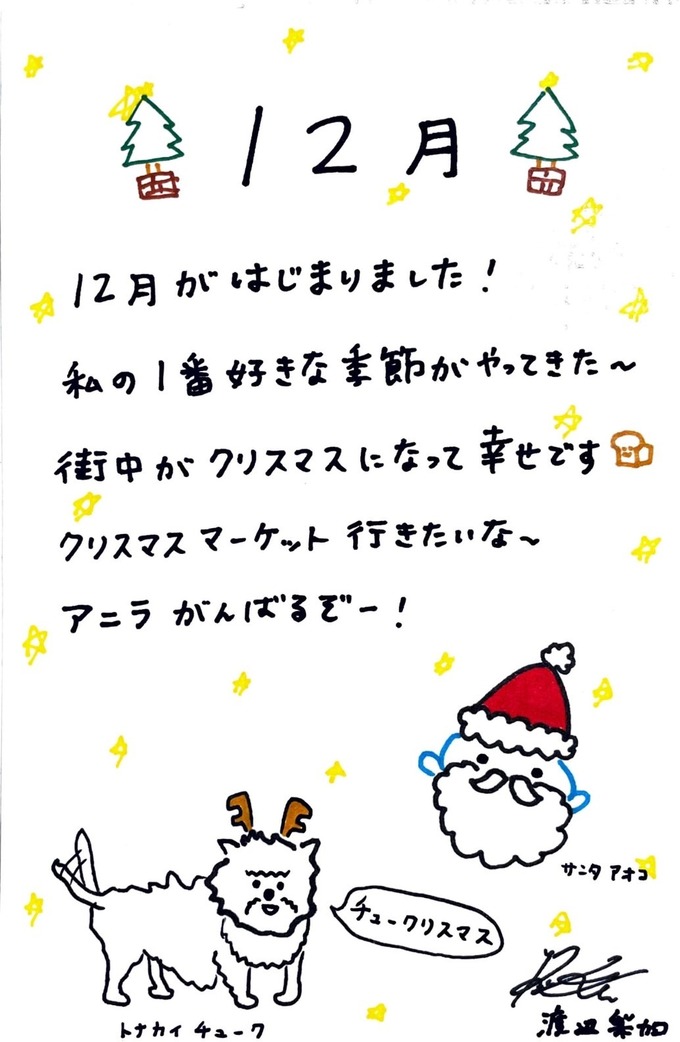 12月
12月がはじまりました！
私の1番好きな季節がやってきた〜
街中がクリスマスになって幸せです
クリスマスマーケット行きたいな〜
アニラがんばるぞー！
サンタアオコ
チュークリスマス
トナカイチューク
渡辺梨加